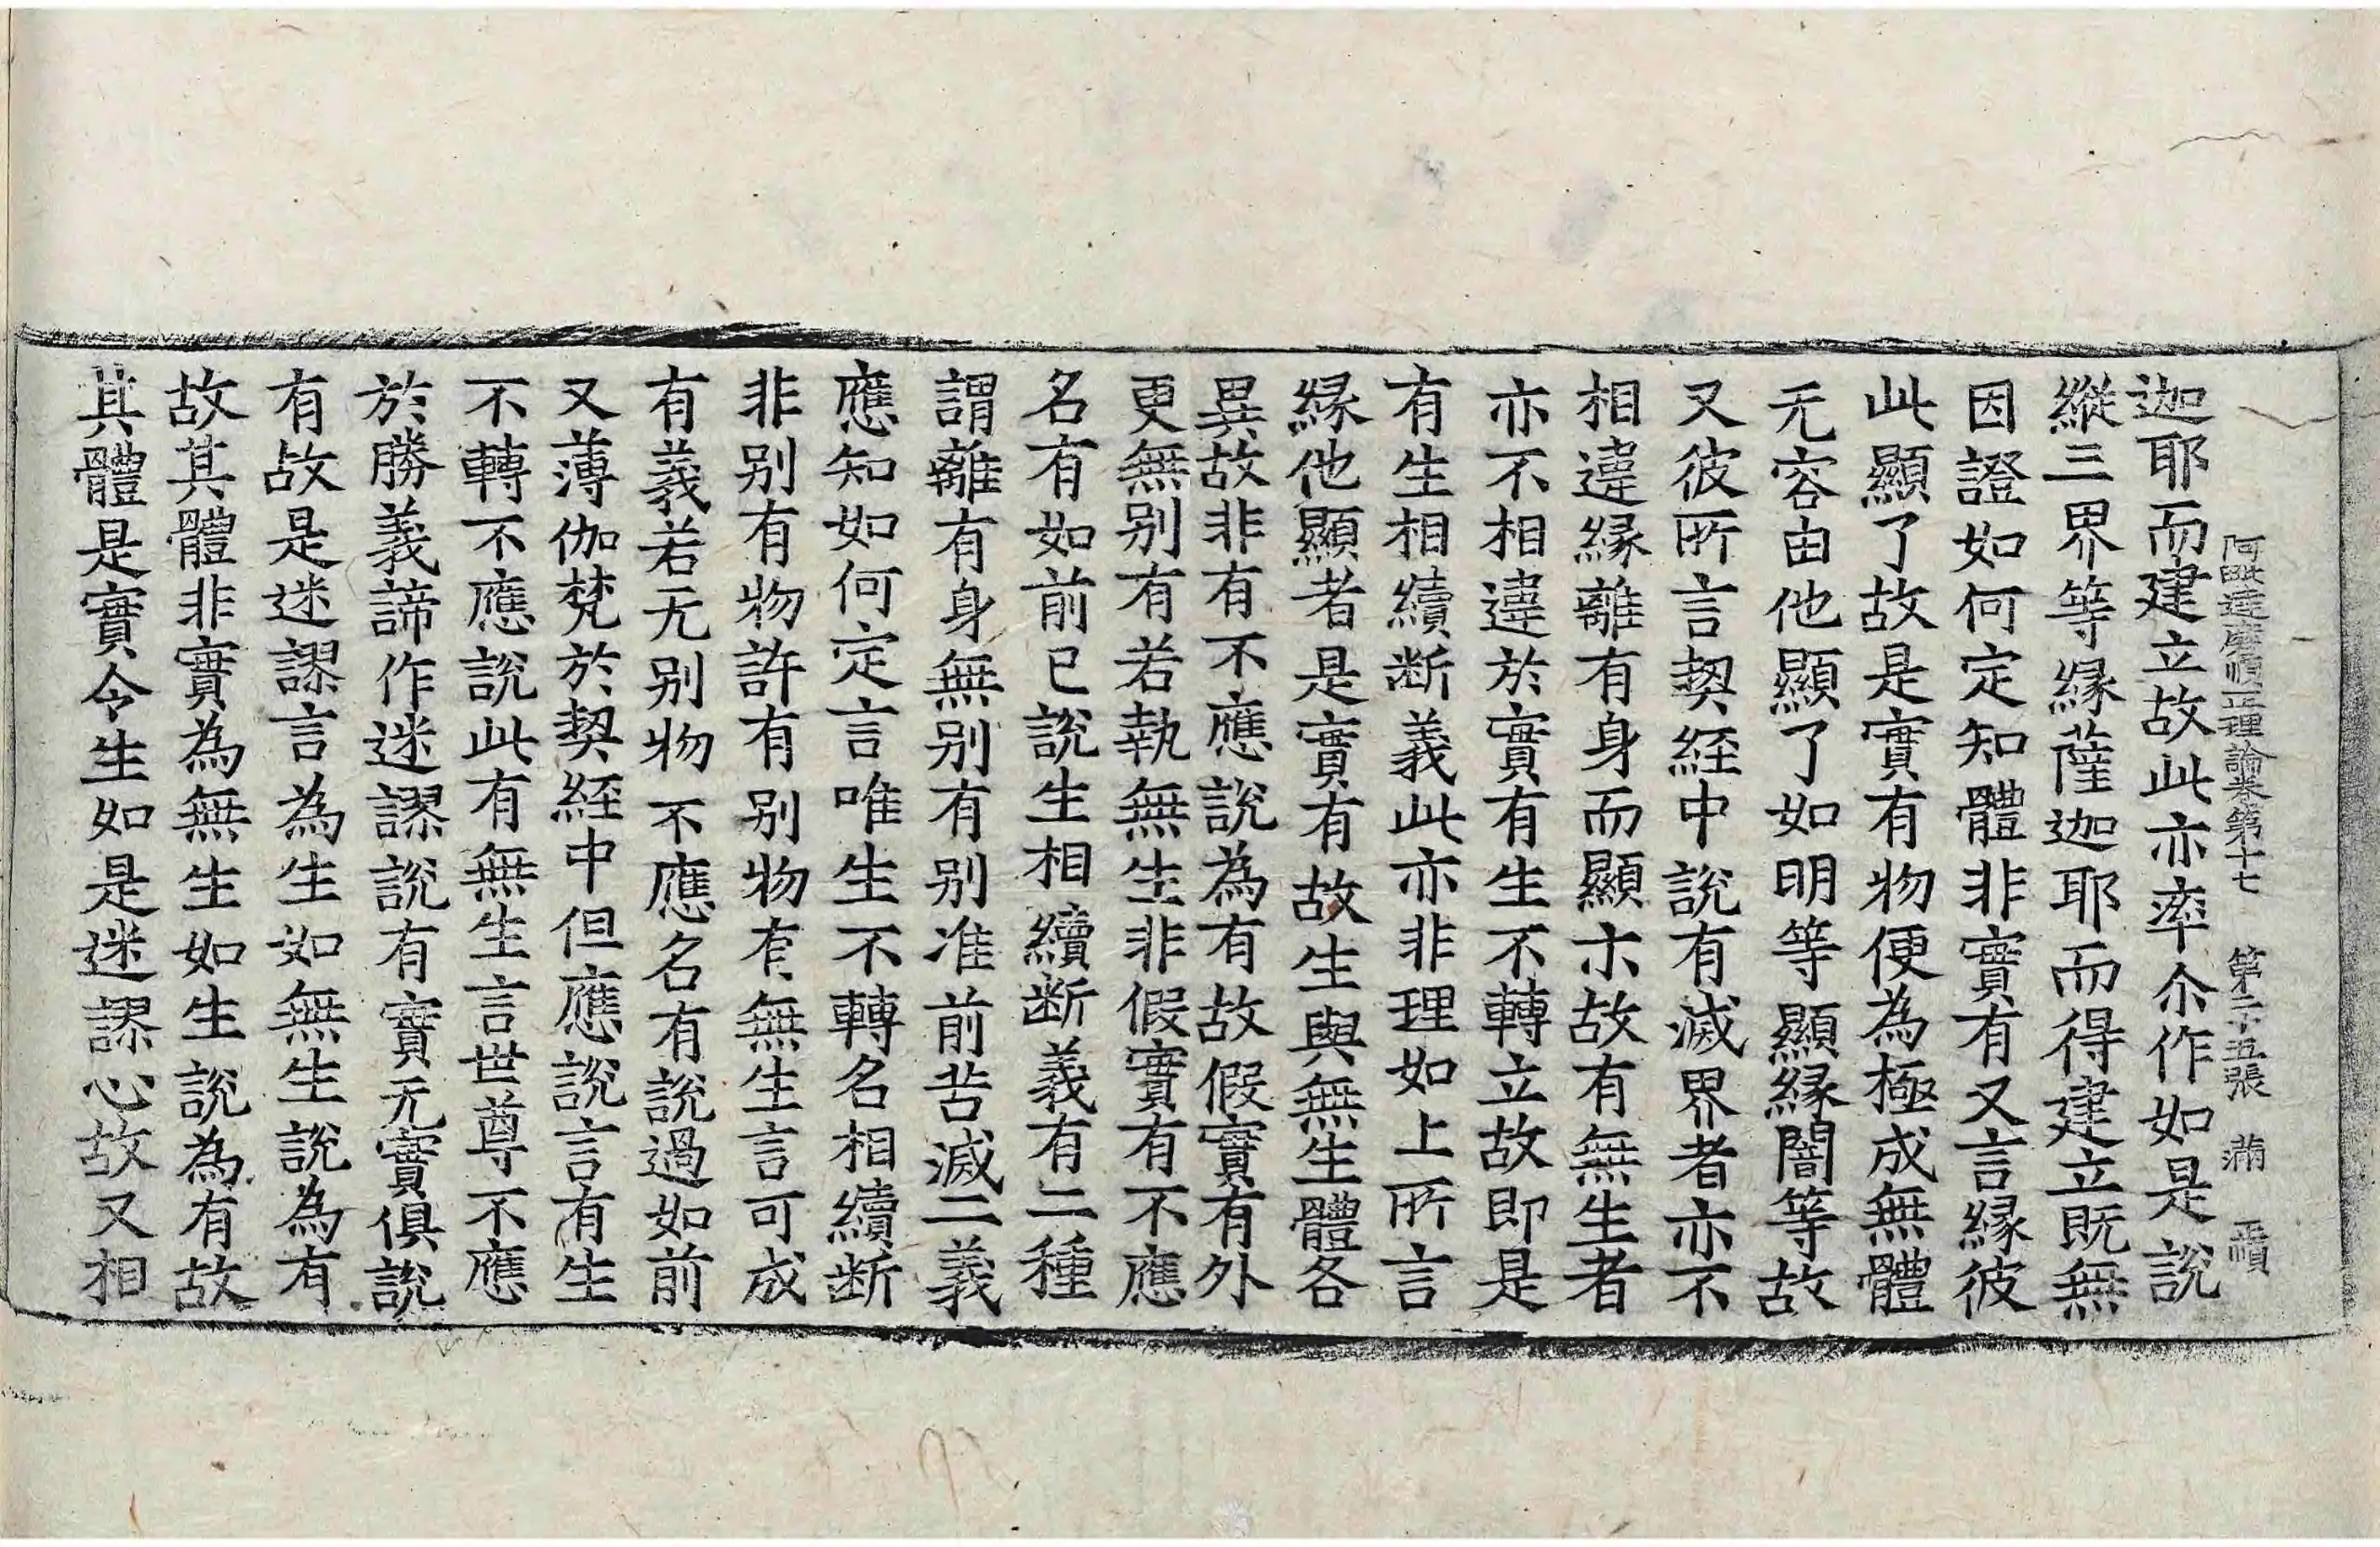 阿毗達磨順正理論卷第十七 第二十五張 滿
迦耶而建立故此亦率尒作如是說
縱三界等緣薩迦耶而得建立既無
因證如何定知體非實有又言緣彼
此顯了故是實有物便為極成無體
无容由他顯了如明等顯緣闇等故
又彼所言契經中說有滅界者亦不
相違緣離有身而顯示故有無生者
亦不相違於實有生不轉立故即是
有生相續断義此亦非理如上所言
緣他顯者是實有故生與無生體各
異故非有不應說為有故假實有外
更無别有若執無生非假實有不應
名有如前已說生相續断義有二種
謂離有身無别有别准前苦滅二義
應知如何定言唯生不轉名相續断
非别有物許有别物有無生言可成
有義若无别物不應名有說過如前
又薄伽梵於契經中但應說言有生
不轉不應說此有無生言世尊不應
於勝義諦作迷謬說有實无實俱說
有故是迷謬言為生如無生說為有
故其體非實為無生如生說為有故
其體是實令生如是迷謬心故又相